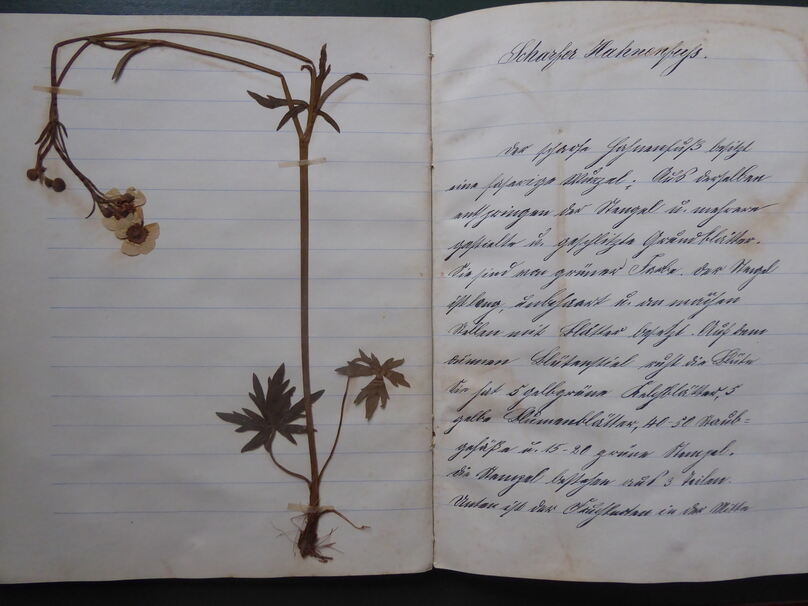 Scharfer Hahnenfuß.
Der scharfe Hahnenfuß besitzt
eine faserige Wurzel; Aus derselben
entspringen der Stengel u. mehrere
gestielte u. geschlitzte Grundblätter.
Sie sind von grüner Farbe. Der Stengel
ist lang, unbehaart u. an manchen
Stellen mit Blätter besetzt. Auf dem
dünnen Blütenstiel ruht die Blüte
Sie hat 5 gelbgrüne Kelchblätter, 5
gelbe Blumenblätter, 40-50 Staub=
gefäße u. 15-20 grüne Stempel.
Die Stempel bestehen aus 3 Teilen.
Unten ist der Fruchtknoten in der Mitte